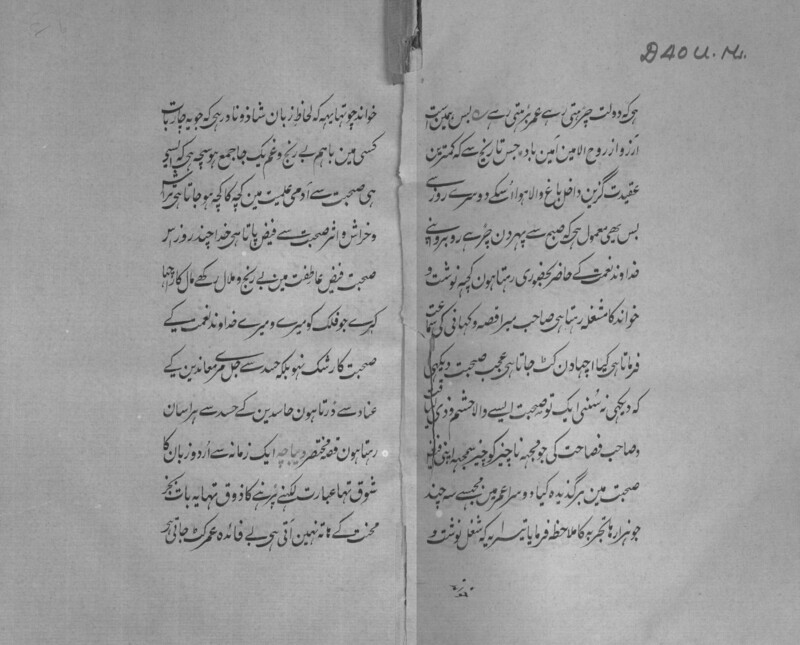 D40 U. M.
ہی کہ دولت چڑہتی رہے عمر بڑہتی رہے بس ہمین ست
آرزو از روح الامین آمین باد جس تاریخ سے کہ کمترین
عقیدت گزین داخل باغ والا ہوا اسکے دوسرے روز سے
بس یہی معمول ہی کہ صبح سے پہر دن چڑہے روبرو اپنے
خداوند نعمت کے حاضر حضوری رہتا ہون کچہ نوشت و
خواند کا مشغلہ رہتا ہی صاحب میرا قصہ و کہانی کی سماعت
فرماتا ہی کیا اچہا دن کٹ جاتا ہی عجب صحبت دیکہی
کہ دیکہی نہ سنی ایک تو صحبت ایسے والا حشم و ذی لیاقت
و صاحب فصاحت کی جو مجہہ ناچیز کو چیز سمجہا اپنی
صحبت مین برگذیدہ کیا دوسرا عمر مین مجہسے سہ چند
جو ہزارہا تجربہ کا ملاحظہ فرمایا تیسرا یہ کہ شغل نوشت و
خواند چوتہا یہہ کہ لحاظ زبان شاذ و نادر ہی کہ جو یہ چار بات
کسی مین باہم بے رنج و غم یک جا جمع ہو سچ ہی کہ ایسی
ہی صحبت سے آدمی علمیت مین کچہ کا کچہ ہو جاتا ہی تراش
و خراش و اثر صحبت سے فیض پاتا ہی خدا چند روز اس
صحبت فیض عاطفت مین بے رنج و ملال رکھے مآل کار اچہا
کرے جو فلک کو میرے و میرے خداوند نعمت کے
صحبت کا رشک نہو بلکہ حسد سے جل مرے معاندین کے
عناد سے ڈرتا ہون حاسدین کے حسد سے ہراسان
رہتا ہون قصہ مختصر دیباچہ ایک زمانہ سے اردو زبان کا
شوق تہا عبارت لکہنے پڑہنے کا ذوق تہا یہ بات بجز
محنت کے ہاتہ نہین آتی ہی بے فائدہ عمر کٹ جاتی ہی